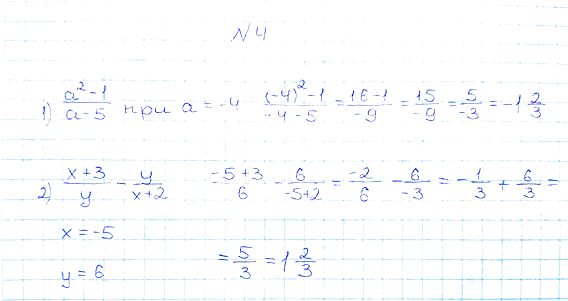 №4
1) (a²-1)/(a-5) при a = -4 ((-4)²-1)/(-4-5) = (16-1)/(-9) = 15/(-9) = 5/(-3) = -1 2/3
2) (x+3)/y - y/(x+2) (-5+3)/6 - 6/(-5+2) = (-2)/6 - 6/(-3) = -1/3 + 6/3 =
x = -5
= 5/3 = 1 2/3
y = 6